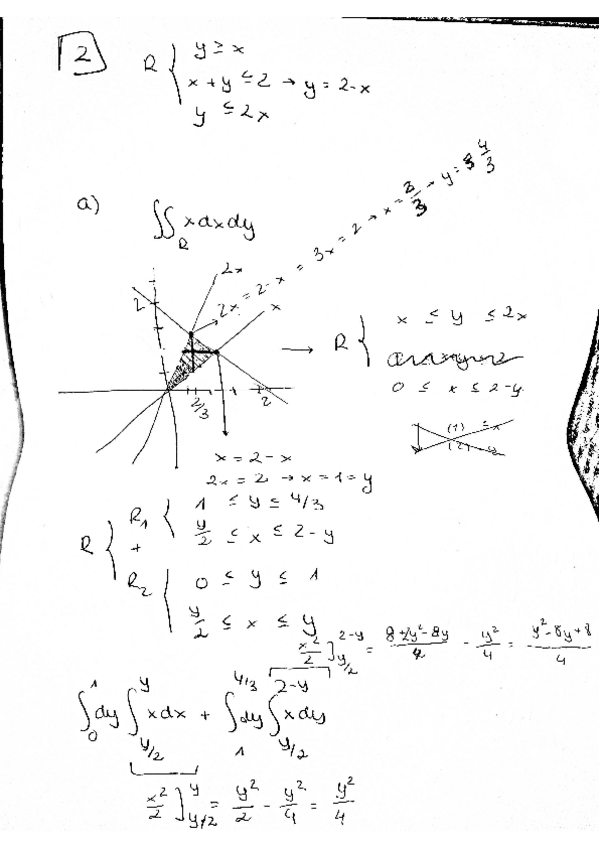 2
R { y ≥ x
x + y ≤ 2 → y = 2-x
y ≤ 2x
a) ∬_R x dx dy
2x = 2-x = 3x = 2 → x = 2/3 → y = 4/3
2x
x
2
2/3
2
→ R { x ≤ y ≤ 2x
0 ≤ x ≤ 2-y
(1) ≤ x
(2)
x = 2-x
2x = 2 → x = 1 = y
R { R₁ { 1 ≤ y ≤ 4/3
y/2 ≤ x ≤ 2-y
+
R₂ { 0 ≤ y ≤ 1
y/2 ≤ x ≤ y
x²/2 ]_{y/2}^{2-y} = (8+2y²-8y)/4 - y²/4 = (y²-8y+8)/4
∫_0^1 dy ∫_{y/2}^{y} x dx + ∫_1^{4/3} dy ∫_{y/2}^{2-y} x dy
x²/2 ]_{y/2}^{y} = y²/2 - y²/4 = y²/4